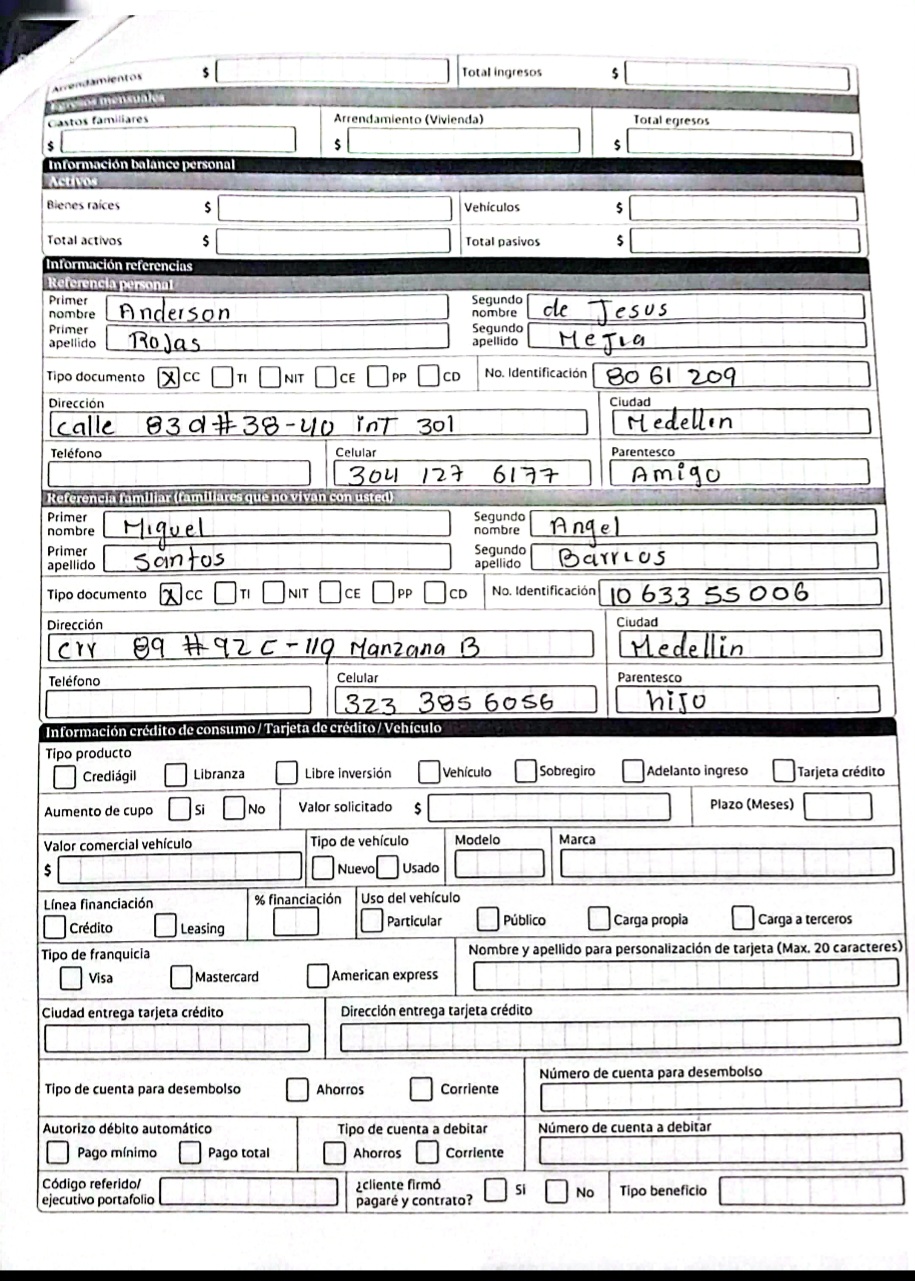 Arrendamientos $ Total ingresos $
Egresos mensuales
Castos familiares Arrendamiento (Vivienda) Total egresos
$ $ $
Información balance personal
Activos
Bienes raíces $ Vehículos $
Total activos $ Total pasivos $
Información referencias
Referencia personal
Primer nombre Anderson Segundo nombre de Jesus
Primer apellido Rojas Segundo apellido Mejia
Tipo documento X CC TI NIT CE PP CD No. Identificación 80 61 209
Dirección Ciudad
calle 83 d # 38-40 inT 301 Medellin
Teléfono Celular Parentesco
304 127 6177 Amigo
Referencia familiar (familiares que no vivan con usted)
Primer nombre Miguel Segundo nombre Angel
Primer apellido Santos Segundo apellido Barrios
Tipo documento X CC TI NIT CE PP CD No. Identificación 10 633 55 006
Dirección Ciudad
crr 89 # 92 C - 119 Manzana B Medellin
Teléfono Celular Parentesco
323 385 6056 hijo
Información crédito de consumo / Tarjeta de crédito / Vehículo
Tipo producto
Crediágil Libranza Libre inversión Vehículo Sobregiro Adelanto ingreso Tarjeta crédito
Aumento de cupo Si No Valor solicitado $ Plazo (Meses)
Valor comercial vehículo Tipo de vehículo Modelo Marca
$ Nuevo Usado
Línea financiación % financiación Uso del vehículo
Crédito Leasing Particular Público Carga propia Carga a terceros
Tipo de franquicia Nombre y apellido para personalización de tarjeta (Max. 20 caracteres)
Visa Mastercard American express
Ciudad entrega tarjeta crédito Dirección entrega tarjeta crédito
Tipo de cuenta para desembolso Ahorros Corriente Número de cuenta para desembolso
Autorizo débito automático Tipo de cuenta a debitar Número de cuenta a debitar
Pago mínimo Pago total Ahorros Corriente
Código referido/ ejecutivo portafolio ¿cliente firmó pagaré y contrato? Si No Tipo beneficio